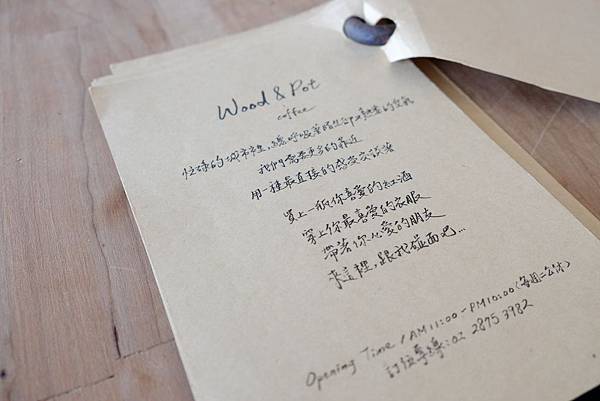 Wood & Pot
coffee
忙碌的城市裡,總呼吸著陌生
我們需要多的靠近
用一種最直接的感受交談著
買上一瓶你喜愛的紅酒
穿上你最喜愛的衣服
帶著你心愛的朋友
來這裡,跟我碰面吧...
Opening Time / AM11:00-PM10:00(每周二公休)
訂位專線:02 2875 3982